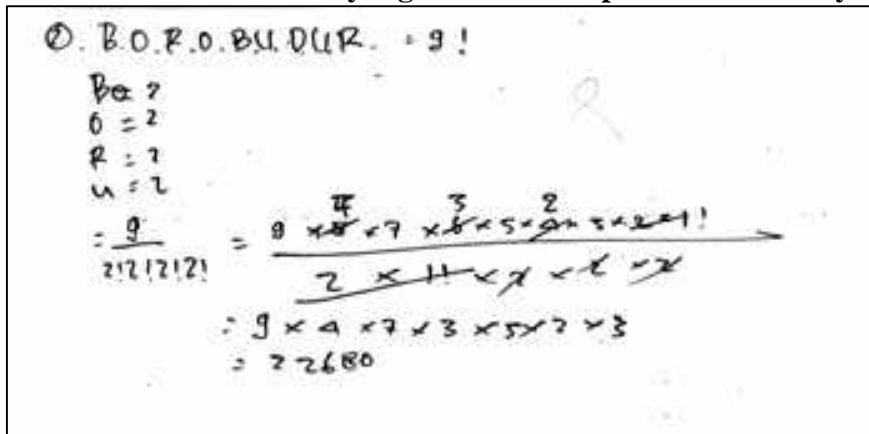 ②. B.O.R.O.BU.DUR. = 9!
B = 2
O = 2
R = 2
U = 2
= 9 / 2!2!2!2! = 9 × 8 × 7 × 6 × 5 × 4 × 3 × 2 × 1! / 2 × 1! × 2 × 2 × 2
4 3 2
= 9 × 4 × 7 × 3 × 5 × 2 × 3
= 22680